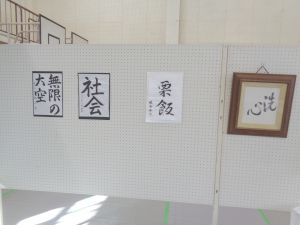 無限の
大空
社会
栗飯
洗心